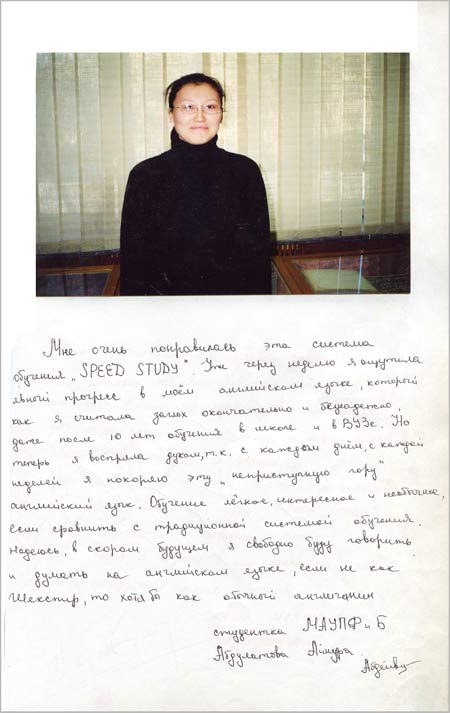 Мне очень понравилась эта система
обучения „SPEED STUDY". Уже через неделю я ощутила
явный прогресс в моём английском языке, который
как я считала заглох окончательно и безнадежно,
даже после 10 лет обучения в школе и в ВУЗе. Но
теперь я воспряла духом, т.к. с каждым днём, с каждой
неделей я покоряю эту „неприступную гору"
английский язык. Обучение лёгкое, интересное и необычное,
если сравнить с традиционной системой обучения.
Надеюсь, в скором будущем я свободно буду говорить
и думать на английском языке, если не как
Шекспир, то хотя бы как обычный англичанин
студентка МАУПФиБ
Абдулатова Айнура